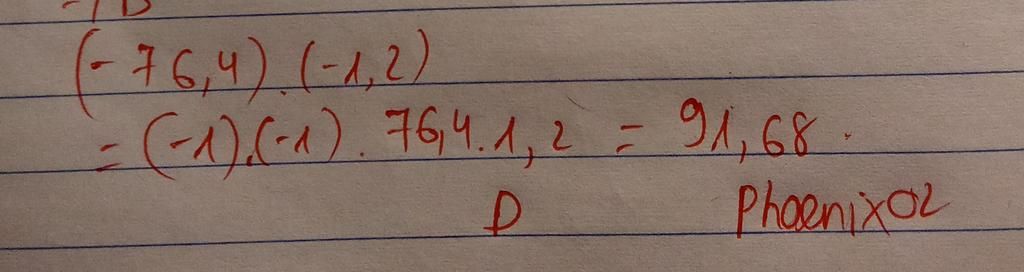 (-76,4).(-1,2)
=(-1).(-1).76,4.1,2 = 91,68.
D Phoenix02